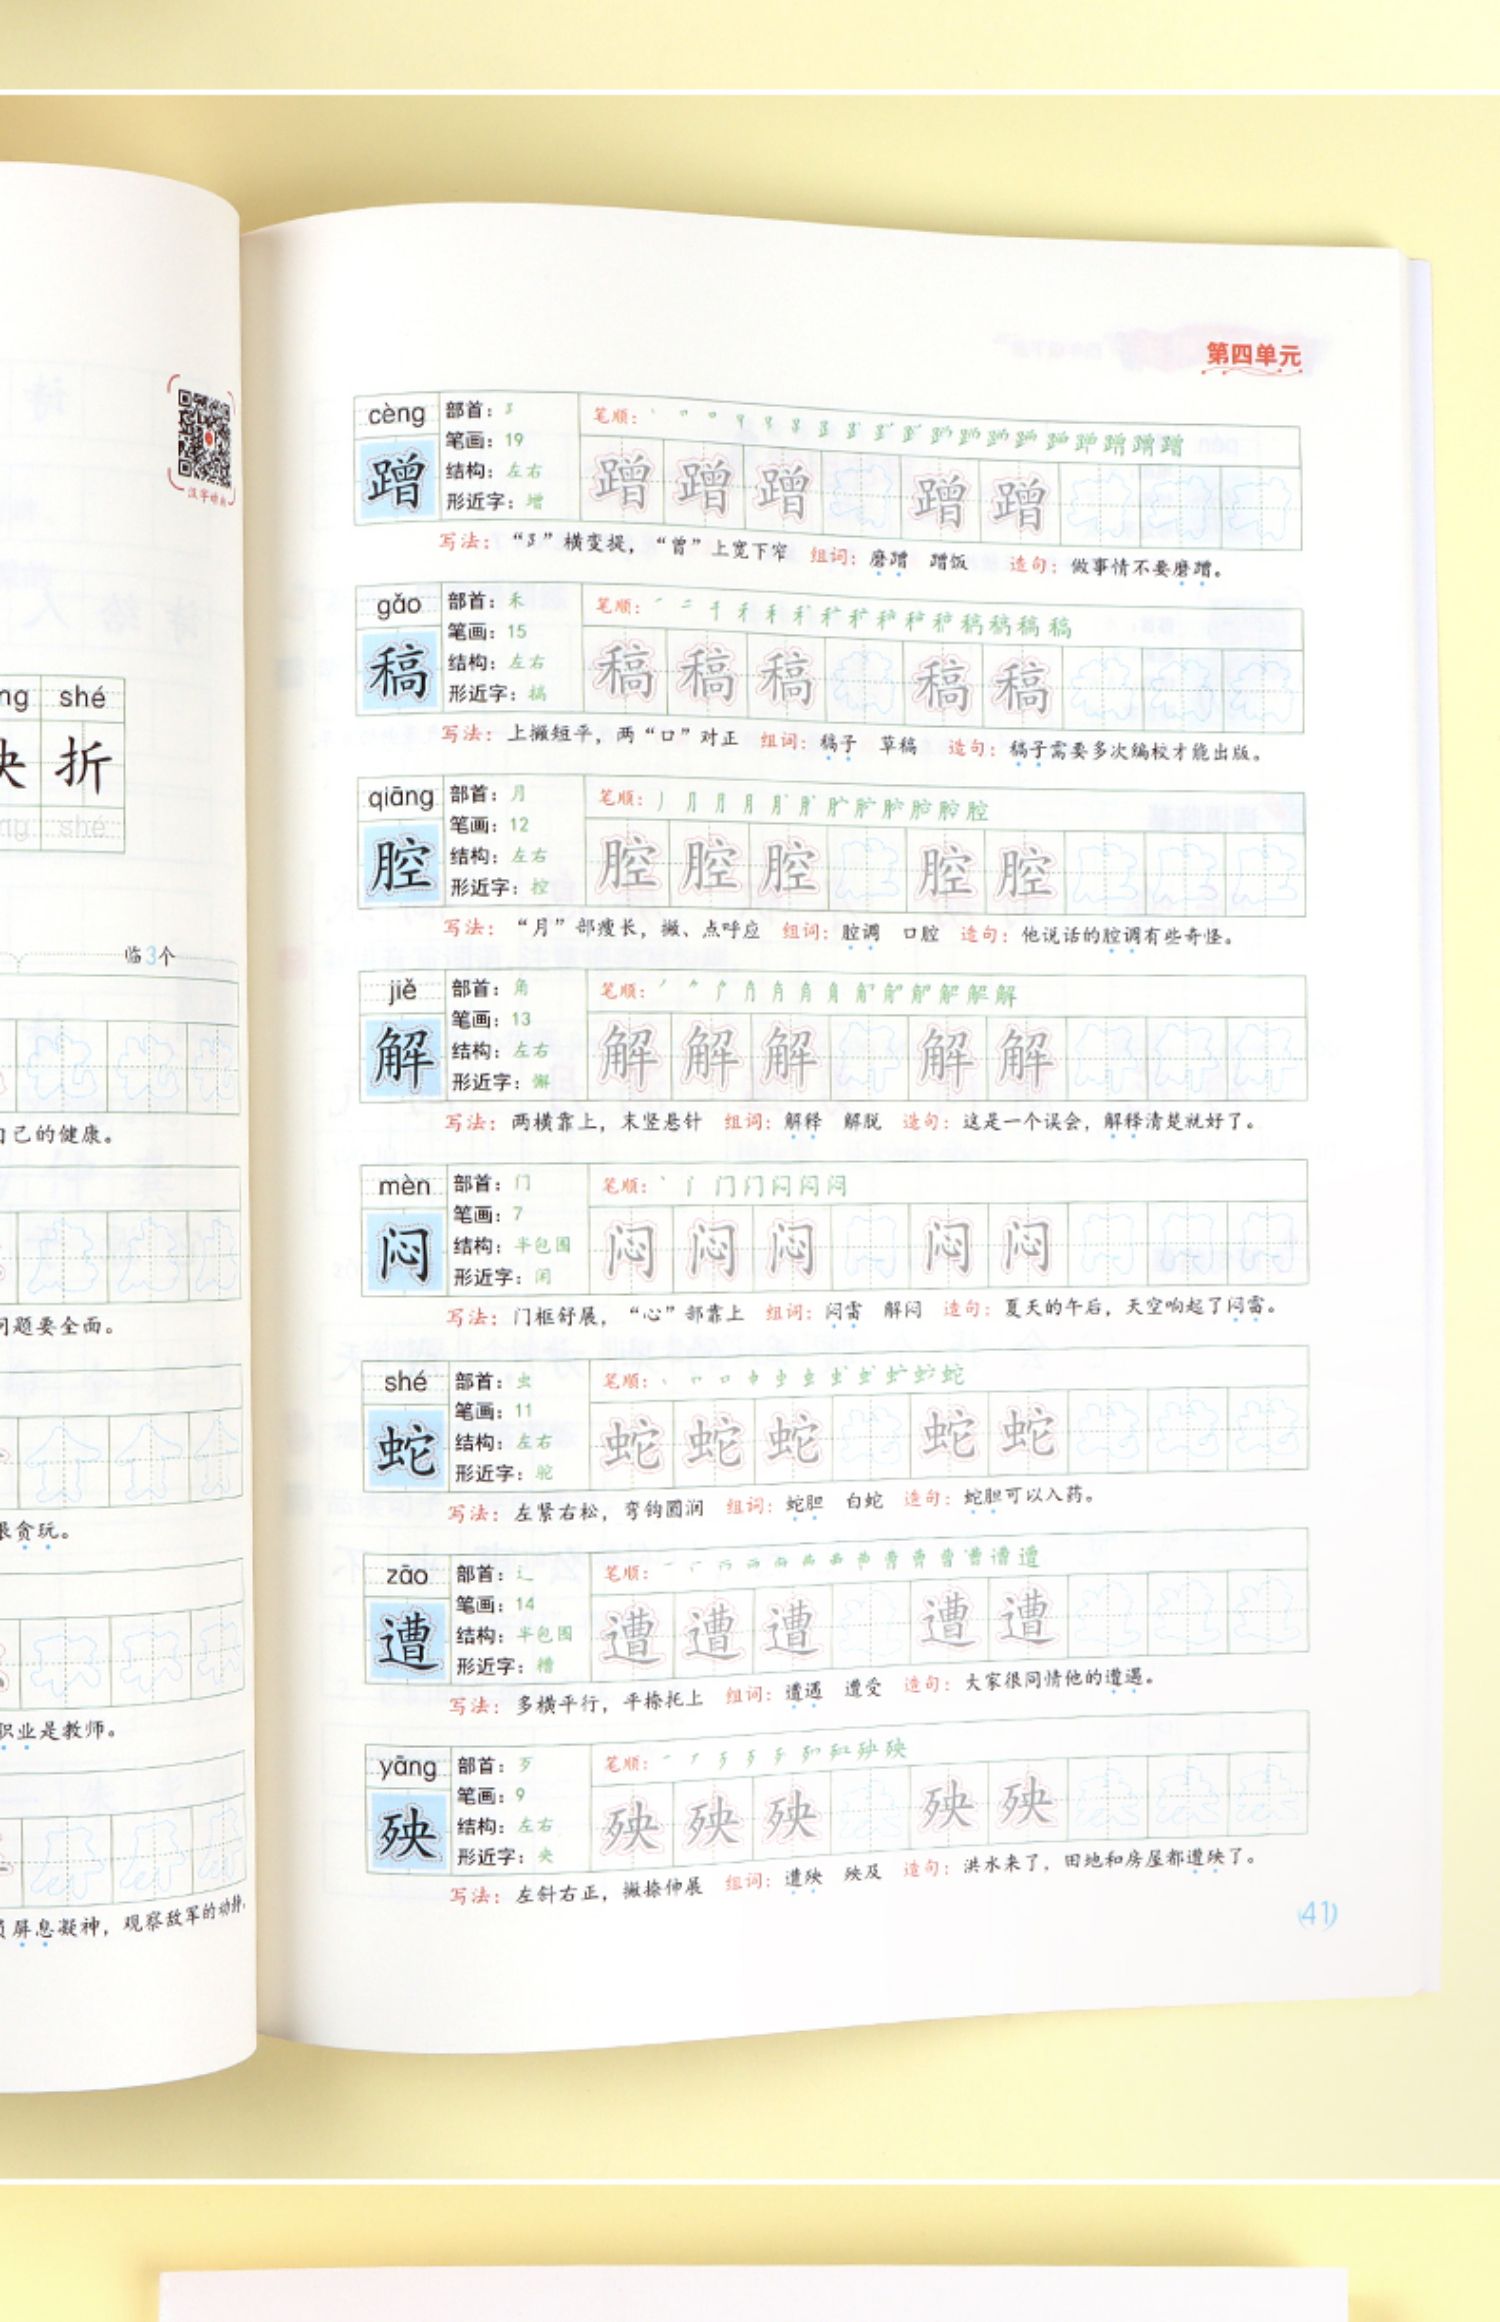 汉字
ng shé
折
ng shé
临3个
自己的健康。
问题要全面。
贪玩。
职业是教师。
屏息凝神，观察敌军的动静，
第四单元
cèng 部首： 笔顺：
蹭 笔画：19 蹭 蹭 蹭 蹭 蹭
结构：左右
形近字：增
写法：“⻊”横变提，“曾”上宽下窄 组词：磨蹭 蹭饭 造句：做事情不要磨蹭。
gǎo 部首：禾 笔顺：
稿 笔画：15 稿 稿 稿 稿 稿
结构：左右
形近字：搞
写法：上撇短平，两“口”对正 组词：稿子 草稿 造句：稿子需要多次编校才能出版。
qiāng 部首：月 笔顺：
腔 笔画：12 腔 腔 腔 腔 腔
结构：左右
形近字：控
写法：“月”部瘦长，撇、点呼应 组词：腔调 口腔 造句：他说话的腔调有些奇怪。
jiě 部首：角 笔顺：
解 笔画：13 解 解 解 解 解
结构：左右
形近字：懈
写法：两横靠上，末竖悬针 组词：解释 解脱 造句：这是一个误会，解释清楚就好了。
mèn 部首：门 笔顺：
闷 笔画：7 闷 闷 闷 闷 闷
结构：半包围
形近字：闲
写法：门框舒展，“心”部靠上 组词：闷雷 解闷 造句：夏天的午后，天空响起了闷雷。
shé 部首：虫 笔顺：
蛇 笔画：11 蛇 蛇 蛇 蛇 蛇
结构：左右
形近字：驼
写法：左紧右松，弯钩圆润 组词：蛇胆 白蛇 造句：蛇胆可以入药。
zāo 部首：辶 笔顺：
遭 笔画：14 遭 遭 遭 遭 遭
结构：半包围
形近字：糟
写法：多横平行，平捺托上 组词：遭遇 遭受 造句：大家很同情他的遭遇。
yāng 部首：歹 笔顺：
殃 笔画：9 殃 殃 殃 殃 殃
结构：左右
形近字：央
写法：左斜右正，撇捺伸展 组词：遭殃 殃及 造句：洪水来了，田地和房屋都遭殃了。
41